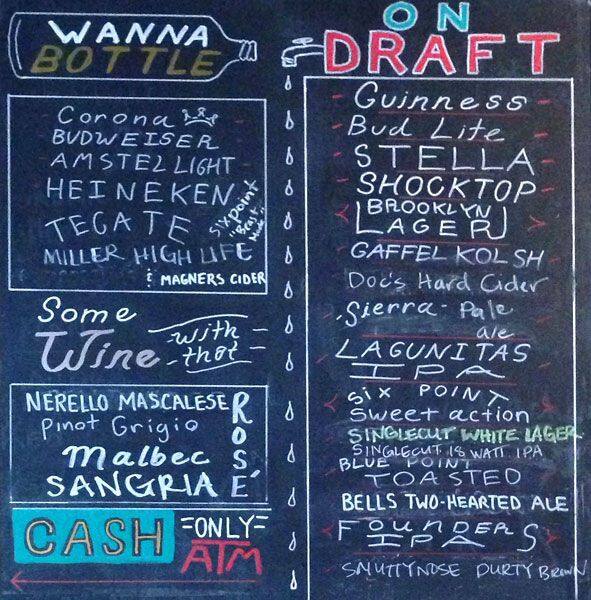 WANNA
BOTTLE
Corona
BUDWEISER
AMSTEL LIGHT
HEINEKEN
TECATE
SIXPOINT
MILLER HIGH LIFE
& MAGNERS CIDER
Some
Wine
-with-
-that-
NERELLO MASCALESE
Pinot Grigio
Malbec
SANGRIA
ROSÉ
CASH
=ONLY=
ATM
ON
DRAFT
Guinness
Bud Lite
STELLA
SHOCKTOP
BROOKLYN
LAGER
GAFFEL KOLSH
Doc's Hard Cider
Sierra Pale
ale
LAGUNITAS
IPA
SIX POINT
Sweet action
SINGLECUT WHITE LAGER
SINGLECUT 18 WATT IPA
BLUE POINT
TOASTED
BELLS TWO-HEARTED ALE
FOUNDERS
IPA
SMUTTYNOSE DURTY BROWN